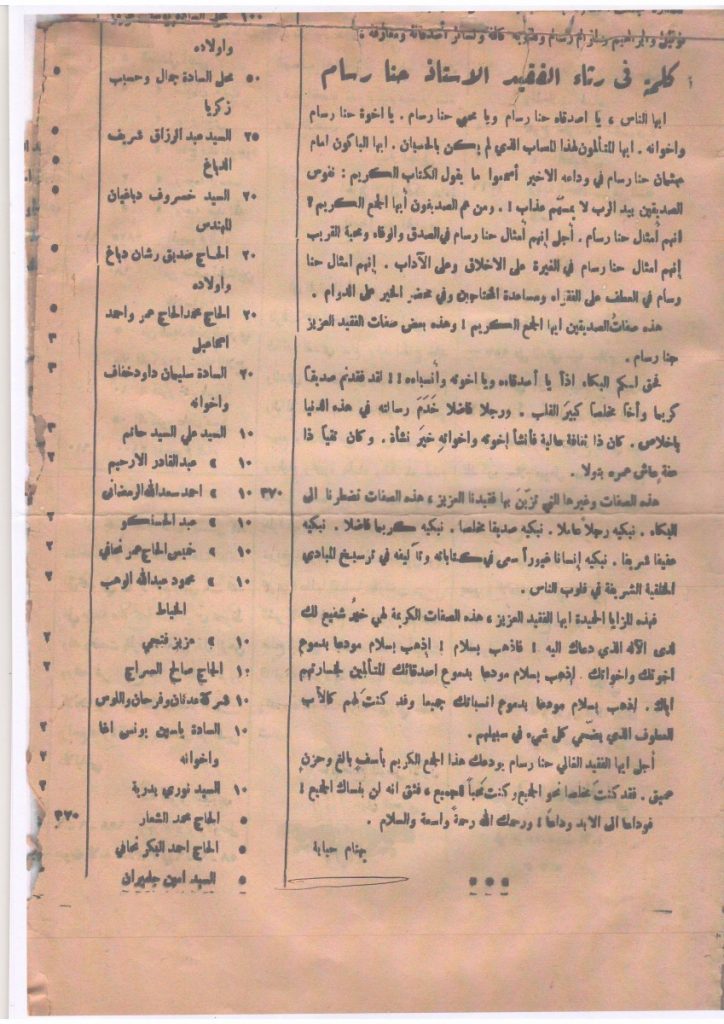 توفيق وابراهيم وسائر آل رسام وذويه كافة ولسائر أصدقائه ومعارفه .
كلمة في رثاء الفقيد الاستاذ حنا رسام
ايها الناس ، يا اصدقاء حنا رسام ويا محبي حنا رسام . يا اخوة حنا رسام
واخوانه . ايها المتألمون لهذا المصاب الذي لم يكن بالحسبان . ايها الباكون امام
جثمان حنا رسام في وداعه الاخير أسمعوا ما يقول الكتاب الكريم : نفوس
الصديقين بيد الرب لا يمسّهم عذاب ! . ومن هم الصديقون أيها الجمع الكريم ؟
انهم أمثال حنا رسام . أجل إنهم أمثال حنا رسام في الصدق والوفاء ومحبة القريب
إنهم امثال حنا رسام في الغيرة على الاخلاق وعلى الآداب . إنهم امثال حنا
رسام في العطف على الفقراء ومساعدة المحتاجين وفي محضر الخير على الدوام .
هذه صفات الصديقين ايها الجمع الكريم ! وهذه بعض صفات الفقيد العزيز
حنا رسام .
فحق لكم البكاء اذاً يا أصدقاءه ويا اخوته وأنسباءه !! لقد فقدتم صديقاً
كريما وأخاً مخلصاً كبيرَ القلب . ورجلا فاضلا خَدَمَ رسالته في هذه الدنيا
باخلاص . كان ذا ثقافة عالية فأنشأ إخوته واخواته خيرَ نشأة . وكان تقياً ذا
عفة عاش عمره بتولا .
هذه الصفات وغيرها التي تزيّن بها فقيدنا العزيز ، هذه الصفات تضطرنا الى
البكاء . نبكيه رجلاً عاملا . نبكيه صديقا مخلصا . نبكيه كريما فاضلا . نبكيه
عفيفا شريفا . نبكيه إنسانا غيوراً سعى في كتاباته وتآليفه في ترسيخ المبادي
الخلقية الشريفة في قلوب الناس .
فهذه المزايا الحميدة ايها الفقيد العزيز ، هذه الصفات الكريمة لهي خيرُ شفيع لك
لدى الآله الذي دعاك اليه ! فاذهب بسلام ! إذهب بسلام مودعا بدموع
اخوتك واخواتك . إذهب بسلام مودعا بدموع اصدقائك المتألمين لخسارتهم
اياك . إذهب بسلام مودعا بدموع انسبائك جميعا وقد كنتَ لهم كالأب
العطوف الذي يضحّي كل شيء في سبيلهم .
أجل ايها الفقيد الغالي حنا رسام يودعك هذا الجمع الكريم بأسف بالغ وحزن
عميق . فقد كنتَ مخلصا نحو الجميع وكنتَ محباً للجميع ، فثق انه لن ينساك الجميع !
فوداعا الى الابد وداعا ! ورحمك الله رحمةً واسعة والسلام .
بهنام حبابة
واولاده
٥٠ محل السادة جمال وحسيب
زكريا
٢٥ السيد عبد الرزاق شريف
الدباغ
٢٠ السيد خسروف دباغيان
المهندس
٢٠ الحاج صديق رشان دباغ
واولاده
٢٠ الحاج محمد الحاج عمر واحمد
اسماعيل
٢٠ السادة سليمان داود خفاف
واخوانه
١٠ السيد علي السيد حاتم
١٠ » عبد القادر الارحيم
١٠ » احمد سعد الله الرمضاني ٣٧٠
١٠ » عبد الحسناكو
١٠ » خميس الحاج عمر نحافي
١٠ » محمود عبد الله الوهب
الخياط
١٠ » عزيز فتحي
١٠ الحاج صالح السراج
١٠ شركة عدنان وفرحان واللوس
١٠ السادة ياسين يونس اغا
واخوانه
١٠ السيد نوري بدرية
٥ الحاج محمد الشعار ٣٧٠
٥ الحاج احمد البكر نحافي
٥ السيد امين جلميران